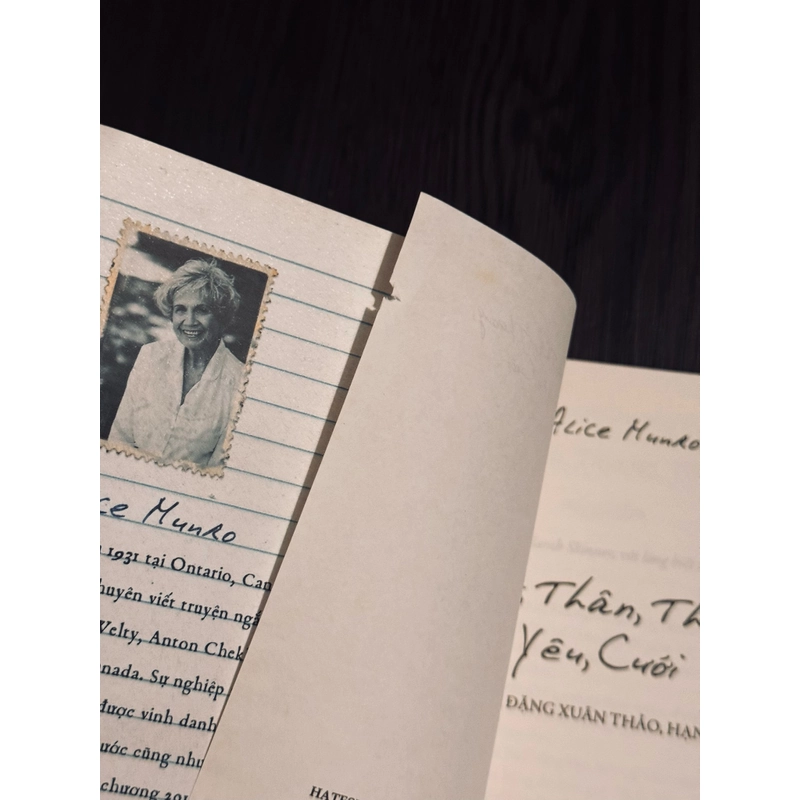 Munro
1931 tại Ontario, Can
huyên viết truyện ngắ
Welty, Anton Chek
nada. Sự nghiệp
được vinh danh
ước cũng như
chương 201
HATES
Alice Munro
Thân, Th
Yêu, Cưới
ĐẶNG XUÂN THẢO, HẠN